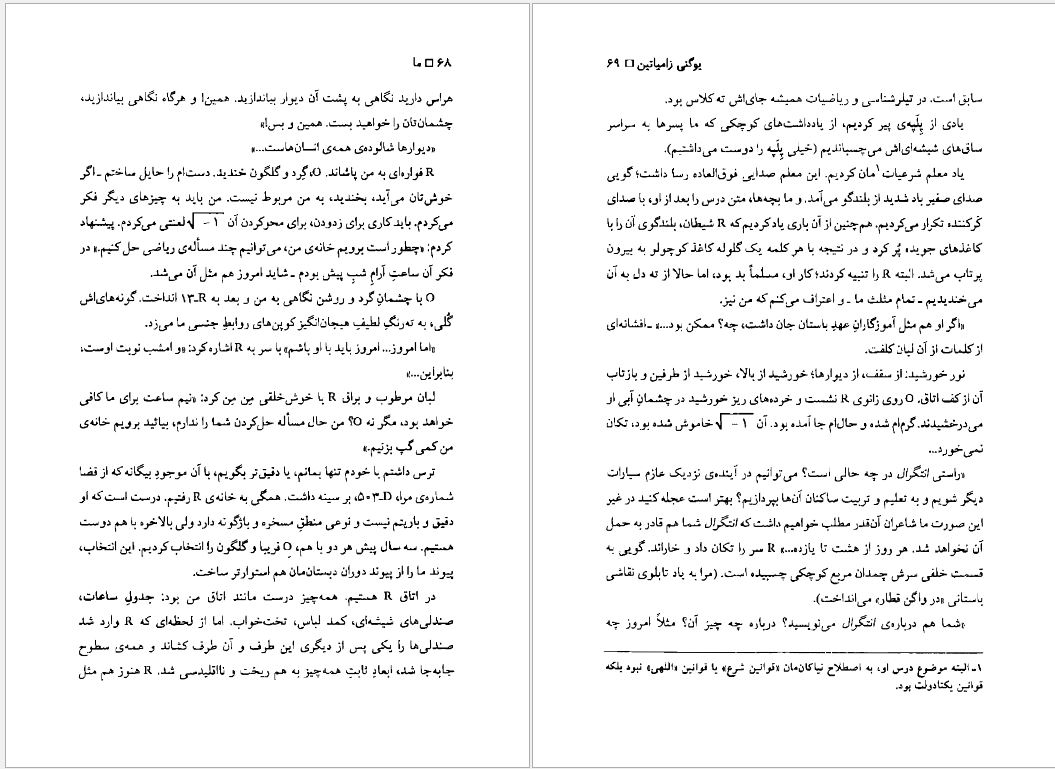 ۶۸ □ ما
هراس دارید نگاهی به پشت آن دیوار بیاندازید. همین! و هرگاه نگاهی بیاندازید،
چشمان‌تان را خواهید بست. همین و بس!»
«دیوارها شالوده‌ی همه‌ی انسان‌هاست...»
R فواره‌ای به من پاشاند. O، گِرد و گلگون خندید. دست‌ام را حایل ساختم ـ اگر
خوش‌تان می‌آید، بخندید، به من مربوط نیست. من باید به چیزهای دیگر فکر
می‌کردم. باید کاری برای زدودن، برای محوکردن آن √−۱ لعنتی می‌کردم. پیشنهاد
کردم: «چطور است برویم خانه‌ی من، می‌توانیم چند مسأله‌ی ریاضی حل کنیم.» در
فکر آن ساعتِ آرامِ شبِ پیش بودم ـ شاید امروز هم مثل آن می‌شد.
O با چشمانِ گرد و روشن نگاهی به من و بعد به R-۱۳ انداخت. گونه‌های‌اش
گُلی، به ته‌رنگِ لطیفِ هیجان‌انگیز کوپن‌های روابطِ جنسی ما می‌زد.
«اما امروز... امروز باید با او باشم» با سر به R اشاره کرد: «و امشب نوبت اوست،
بنابراین...»
لبان مرطوب و براق R با خوش‌خلقی مِن مِن کرد: «نیم ساعت برای ما کافی
خواهد بود، مگر نه O؟ من حال مسأله حل‌کردن شما را ندارم، بیائید برویم خانه‌ی
من کمی گپ بزنیم.»
ترس داشتم با خودم تنها بمانم، یا دقیق‌تر بگویم، با آن موجودِ بیگانه که از قضا
شماره‌ی مرا، D-۵۰۳، بر سینه داشت. همگی به خانه‌ی R رفتیم. درست است که او
دقیق و باریتم نیست و نوعی منطقِ مسخره و باژگونه دارد ولی بالاخره با هم دوست
هستیم. سه سال پیش هر دو با هم، O فریبا و گلگون را انتخاب کردیم. این انتخاب،
پیوند ما را از پیوند دوران دبستان‌مان هم استوارتر ساخت.
در اتاق R هستیم. همه‌چیز درست مانند اتاق من بود: جدولِ ساعات،
صندلی‌های شیشه‌ای، کمد لباس، تخت‌خواب. اما از لحظه‌ای که R وارد شد
صندلی‌ها را یکی پس از دیگری این طرف و آن طرف کشاند و همه‌ی سطوح
جابه‌جا شد، ابعادِ ثابتِ همه‌چیز به هم ریخت و نااقلیدسی شد. R هنوز هم مثل
یوگنی زامیاتین □ ۶۹
سابق است. در تیلرشناسی و ریاضیات همیشه جای‌اش ته کلاس بود.
یادی از پلَپه‌ی پیر کردیم، از یادداشت‌های کوچکی که ما پسرها به سراسر
ساق‌های شیشه‌ای‌اش می‌چسباندیم (خیلی پلَپه را دوست می‌داشتیم).
یاد معلم شرعیات۱مان کردیم. این معلم صدایی فوق‌العاده رسا داشت؛ گویی
صدای صفیر باد شدید از بلندگو می‌آمد. و ما بچه‌ها، متن درس را بعد از او، با صدای
کَرکننده تکرار می‌کردیم. هم‌چنین از آن باری یاد کردیم که R شیطان، بلندگوی آن را با
کاغذهای جویده پُر کرد و در نتیجه با هر کلمه یک گلوله کاغذ کوچولو به بیرون
پرتاب می‌شد. البته R را تنبیه کردند؛ کار او، مسلماً بد بود، اما حالا از ته دل به آن
می‌خندیدیم ـ تمام مثلث ما ـ و اعتراف می‌کنم که من نیز.
«اگر او هم مثل آموزگارانِ عهدِ باستان جان داشت، چه؟ ممکن بود...» ـ افشانه‌ای
از کلمات از آن لبان کلفت.
نور خورشید: از سقف، از دیوارها؛ خورشید از بالا، خورشید از طرفین و بازتاب
آن از کف اتاق. O روی زانوی R نشست و خرده‌های ریز خورشید در چشمانِ آبی او
می‌درخشیدند. گرم‌ام شده و حال‌ام جا آمده بود. آن √−۱ خاموش شده بود، تکان
نمی‌خورد...
«راستی انتگرال در چه حالی است؟ می‌توانیم در آینده‌ی نزدیک عازم سیارات
دیگر شویم و به تعلیم و تربیت ساکنان آن‌ها بپردازیم؟ بهتر است عجله کنید در غیر
این صورت ما شاعران آن‌قدر مطلب خواهیم داشت که انتگرال شما هم قادر به حمل
آن نخواهد شد. هر روز از هشت تا یازده...» R سر را تکان داد و خاراند. گویی به
قسمت خلفی سرش چمدان مربع کوچکی چسبیده است. (مرا به یاد تابلوی نقاشی
باستانی «در واگن قطار» می‌انداخت).
«شما هم درباره‌ی انتگرال می‌نویسید؟ درباره چه چیز آن؟ مثلاً امروز چه
۱ـ البته موضوع درس او، به اصطلاح نیاکان‌مان «قوانین شرع» یا قوانین «اللهی» نبود بلکه
قوانین یکتادولت بود.